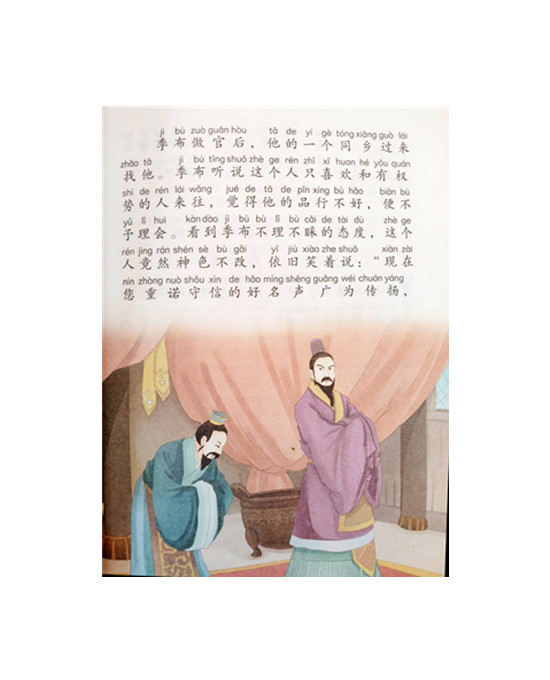 jì bù zuò guān hòu tā de yí gè tóng xiāng guò lái
季布做官后，他的一个同乡过来
zhǎo tā jì bù tīng shuō zhè ge rén zhǐ xǐ huan hé yǒu quán
找他。季布听说这个人只喜欢和有权
shì de rén lái wǎng jué de tā de pǐn xíng bù hǎo biàn bù
势的人来往，觉得他的品行不好，便不
yǔ lǐ huì kàn dào jì bù bù lǐ bù cǎi de tài dù zhè ge
予理会。看到季布不理不睬的态度，这个
rén jìng rán shén sè bù gǎi yī jiù xiào zhe shuō xiàn zài
人竟然神色不改，依旧笑着说：“现在
nín zhòng nuò shǒu xìn de hǎo míng shēng guǎng wéi chuán yáng
您重诺守信的好名声广为传扬，